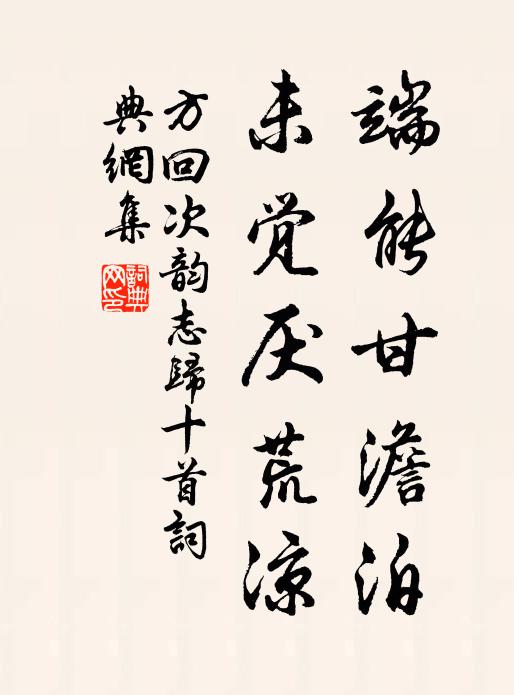 端能甘澹泊
未觉厌荒凉
方回次韵志歸十首詞
典網集
詞典網印